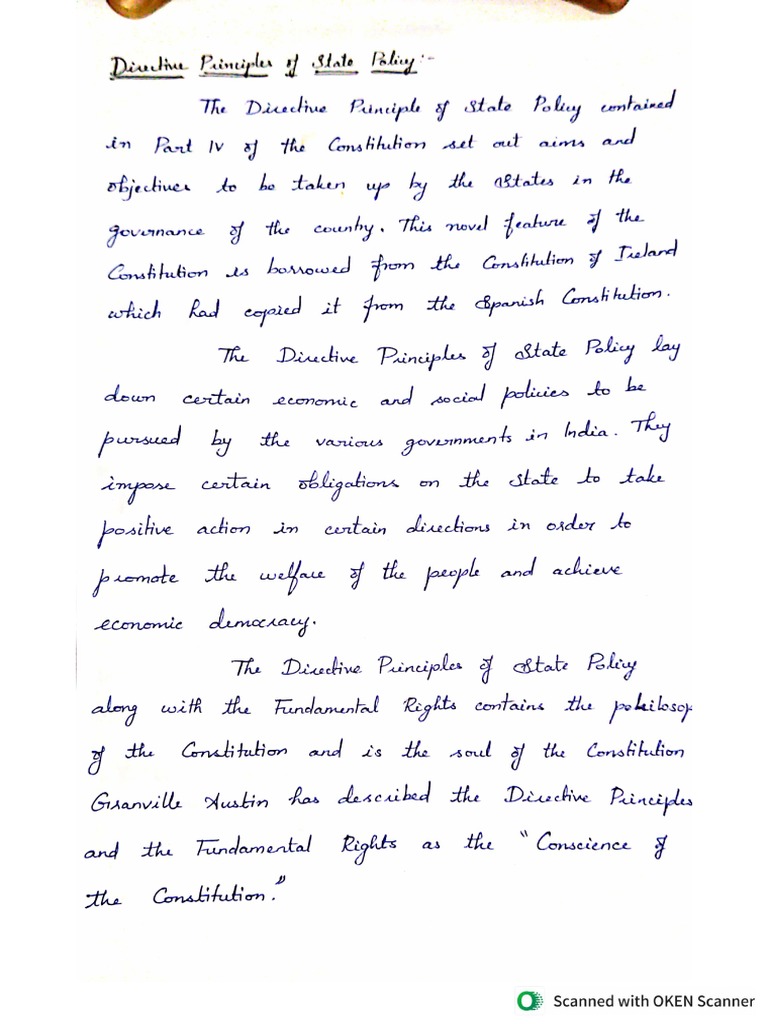 Directive Principles of State Policy:-
The Directive Principle of State Policy contained
in Part IV of the Constitution set out aims and
objectives to be taken up by the States in the
governance of the country. This novel feature of the
Constitution is borrowed from the Constitution of Ireland
which had copied it from the Spanish Constitution.
The Directive Principles of State Policy lay
down certain economic and social policies to be
pursued by the various governments in India. They
impose certain obligations on the State to take
positive action in certain directions in order to
promote the welfare of the people and achieve
economic democracy.
The Directive Principles of State Policy
along with the Fundamental Rights contains the
of the Constitution and is the soul of the Constitution
Granville Austin has described the Directive Principles
and the Fundamental Rights as the "Conscience of
the Constitution."
Scanned with OKEN Scanner